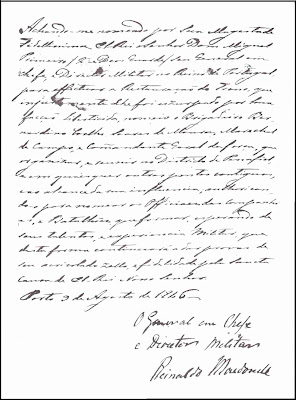 Achando-me nomeado, por Sua Magestade
Fidelissima, El Rei o Senhor Dom Miguel
Primeiro, (Q. Deos Guarde) Seu General em
Chefe, e Director Militar no Reino de Portugal
para effeituar a Restauração do Trono, que
injustamente lhe foi usurpado por huma
facção libertada, nomeio o Brigadeiro Ber-
nardino Coelho Soares de Moura, Marechal
de Campo, e Commandante Geral da força, que
organizar, e reunir no Districto de Penafiel,
e em quaesquer outros pontos contiguos,
e ao alcance da sua influencia, authorizan-
do-o para nomear os Officiaes das Companhi-
as, e Batalhões, que formar, esperando de
seus talentos, e experiencia Militar, que
desta forma continuará a dar provas de
seu acrisolado zello, e fidelidade pela Santa
Causa de El Rei Nosso Senhor.
Porto 3 de Agosto de 1846
O General em Chefe
e Director Militar
Reinaldo Macdonell